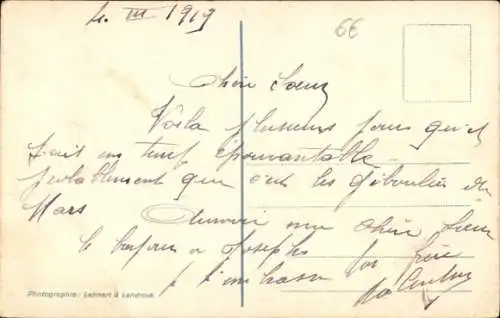 4. III 1919
66
Chère Sœur
Voila plusieurs jours qu'il
fait un temps épouvantable
probablement que c'est les giboulées de
Mars Aurevoir ma Chère Sœur
le bonjour a Josephe
t'embrasse ton frère
Photographie: Lehnert & Landrock.